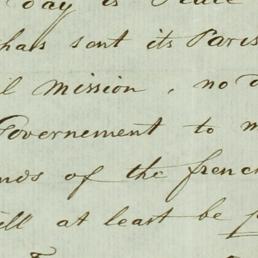 day is
has sent its Paris
mission, no
Governement to m
nds of the frenc
ll at least be p